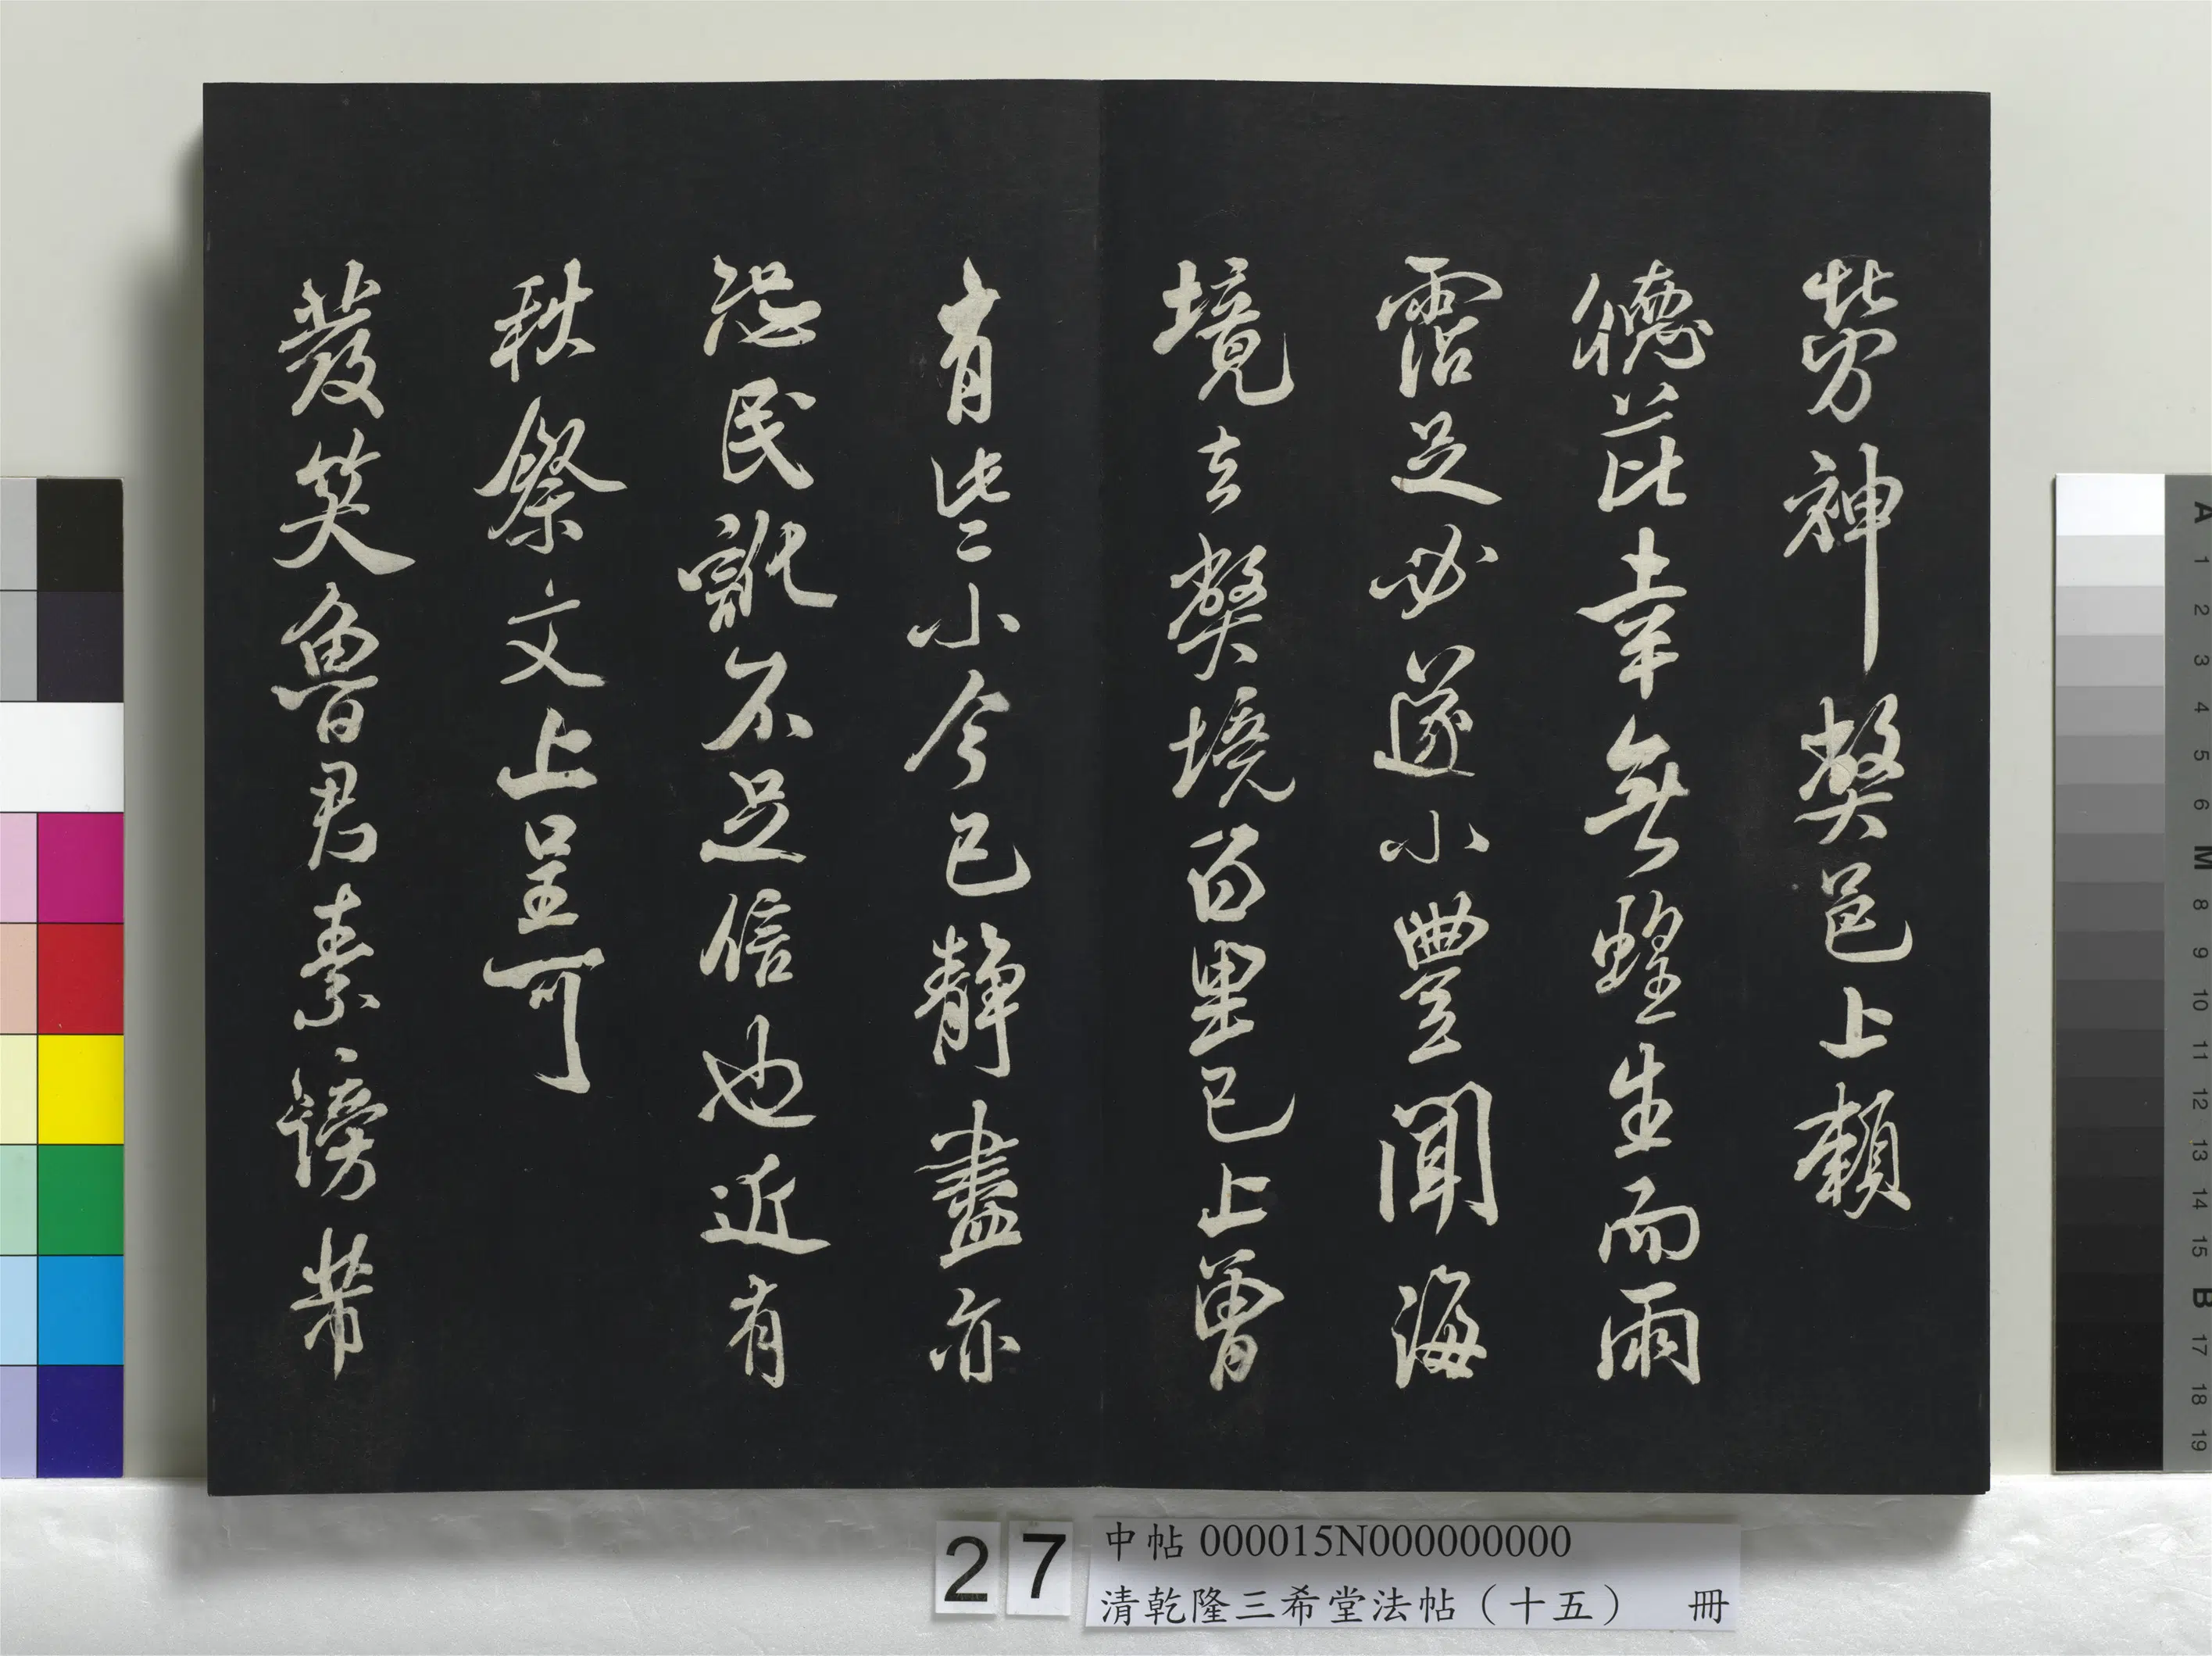 勞神弊邑上賴
德芘幸無蝗生而雨
霑足必遂小豐聞海
境去弊境百里已上曾
有些小今已靜盡亦
恐民訛不足信也近有
秋祭文上呈可
發笑魯君素謗芾
27
中帖 000015N000000000
清乾隆三希堂法帖（十五） 冊
A 1 2 3 4 5 6 M 8 9 10 11 12 13 14 15 B 17 18 19